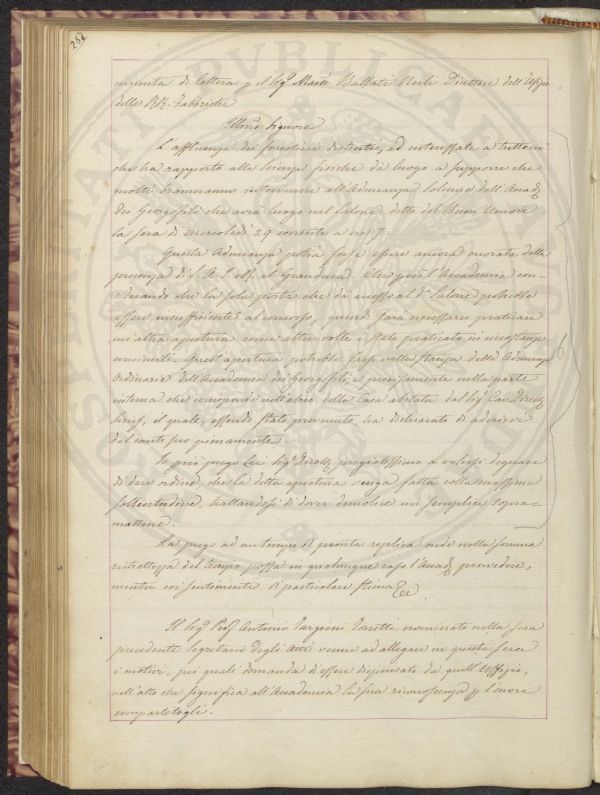 252
minuta di lettera p. il Sigr. Marte Ballati Nerli Direttore dell'Ufizio
delle RR. Fabbriche
Illmo. Signore
L'affluenza dei forestieri distinti, ed interessati a tuttociò
che ha rapporto alle Scienze fisiche dà luogo a supporre che
molti brameranno intervenire all'Adunanza solenne dell'Accad.
dei Georgofili che avrà luogo nel Salone detto del Buon Umore
la sera di mercoledì 29 corrente a ore 7.
Questa Adunanza potrà forse essere ancora onorata della
presenza di S. A. I. e R. il Granduca. Che però l'Accademia con-
siderando che la sola porta che dà accesso al do. Salone potrebbe
essere insufficiente al concorso, quindi sarà necessario praticare
un altra apertura come altre volte è stato praticato in circostanze
consimili. Quest'apertura potrebbe farsi nella stanza delle Adunanze
ordinarie dell'Accademia dei Georgofili, e precisamente nella parte
interna che corrisponde nell'atrio della Casa abitata dal Sigr. Cav. Dirett.
il quale, essendo stato prevenuto, ha dichiarato di aderirvi
dal canto suo pienamente.
Io però prego Lei Sigr. Dirett. pregiatissimo a volersi degnare
di dare ordine che la detta apertura venga fatta colla massima
sollecitudine, trattandosi di dover demolire un semplice sopra-
mattone.
La prego ad un tempo di pronta replica onde nella somma
ristrettezza del tempo possa in qualunque caso l'Accad. provvedere;
mentre coi sentimenti di particolare stima &c.
Il Sigr. Prof. Antonio Targioni Tozzetti nominato nella sera
precedente Segretario degli Atti venne ad allegare in questa sera
i motivi, pei quali domanda di essere dispensato da quell'Uffizio,
nell'atto che significa all'Accademia la sua riconoscenza p. l'onore
compartitogli.